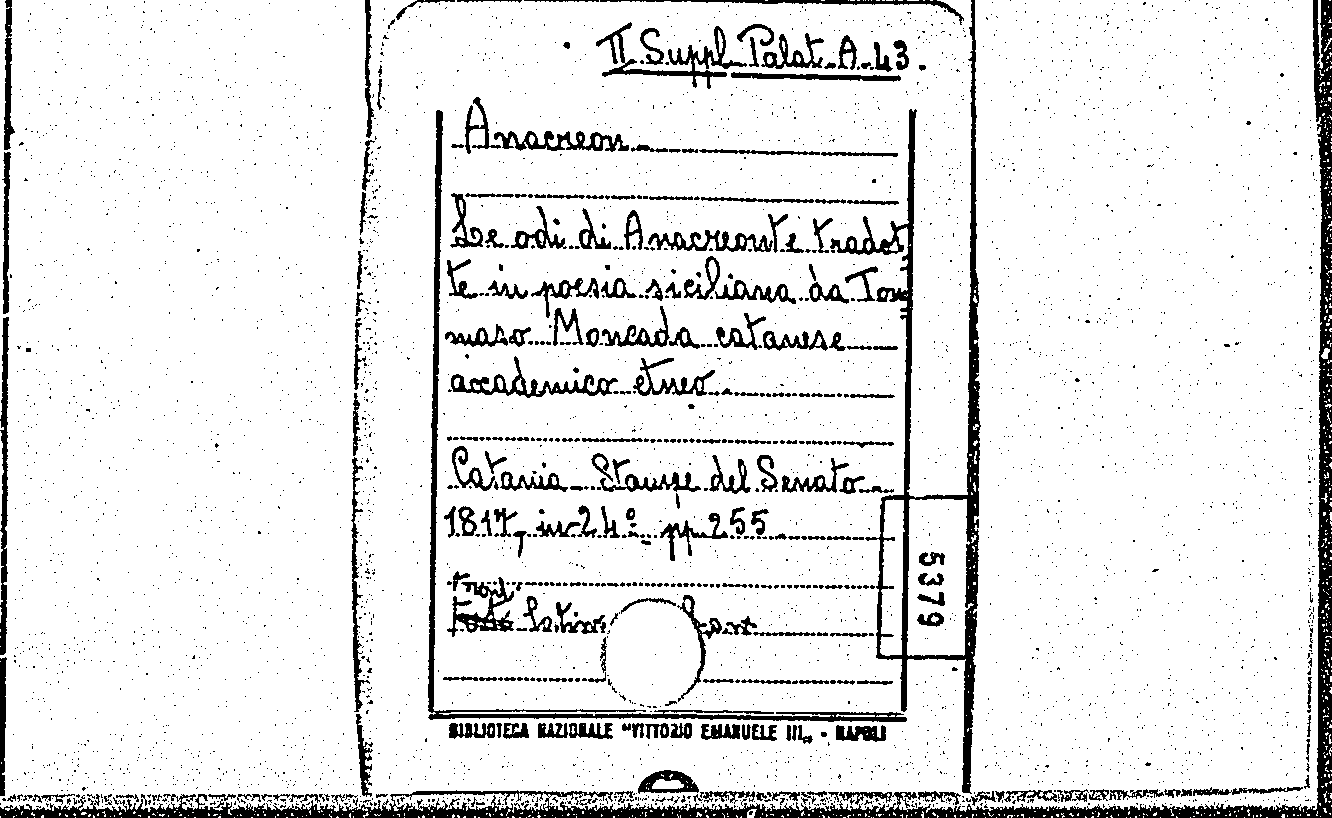 II Suppl. Palat. A. 43.
Anacreon.
Le odi di Anacreonte tradot
te in poesia siciliana da Tom
maso Moncada catanese
accademico etneo.
Catania - Stampe del Senato -
1817, in-24º - pp 255.
trad.
5379
BIBLIOTECA NAZIONALE "VITTORIO EMANUELE III„ - NAPOLI